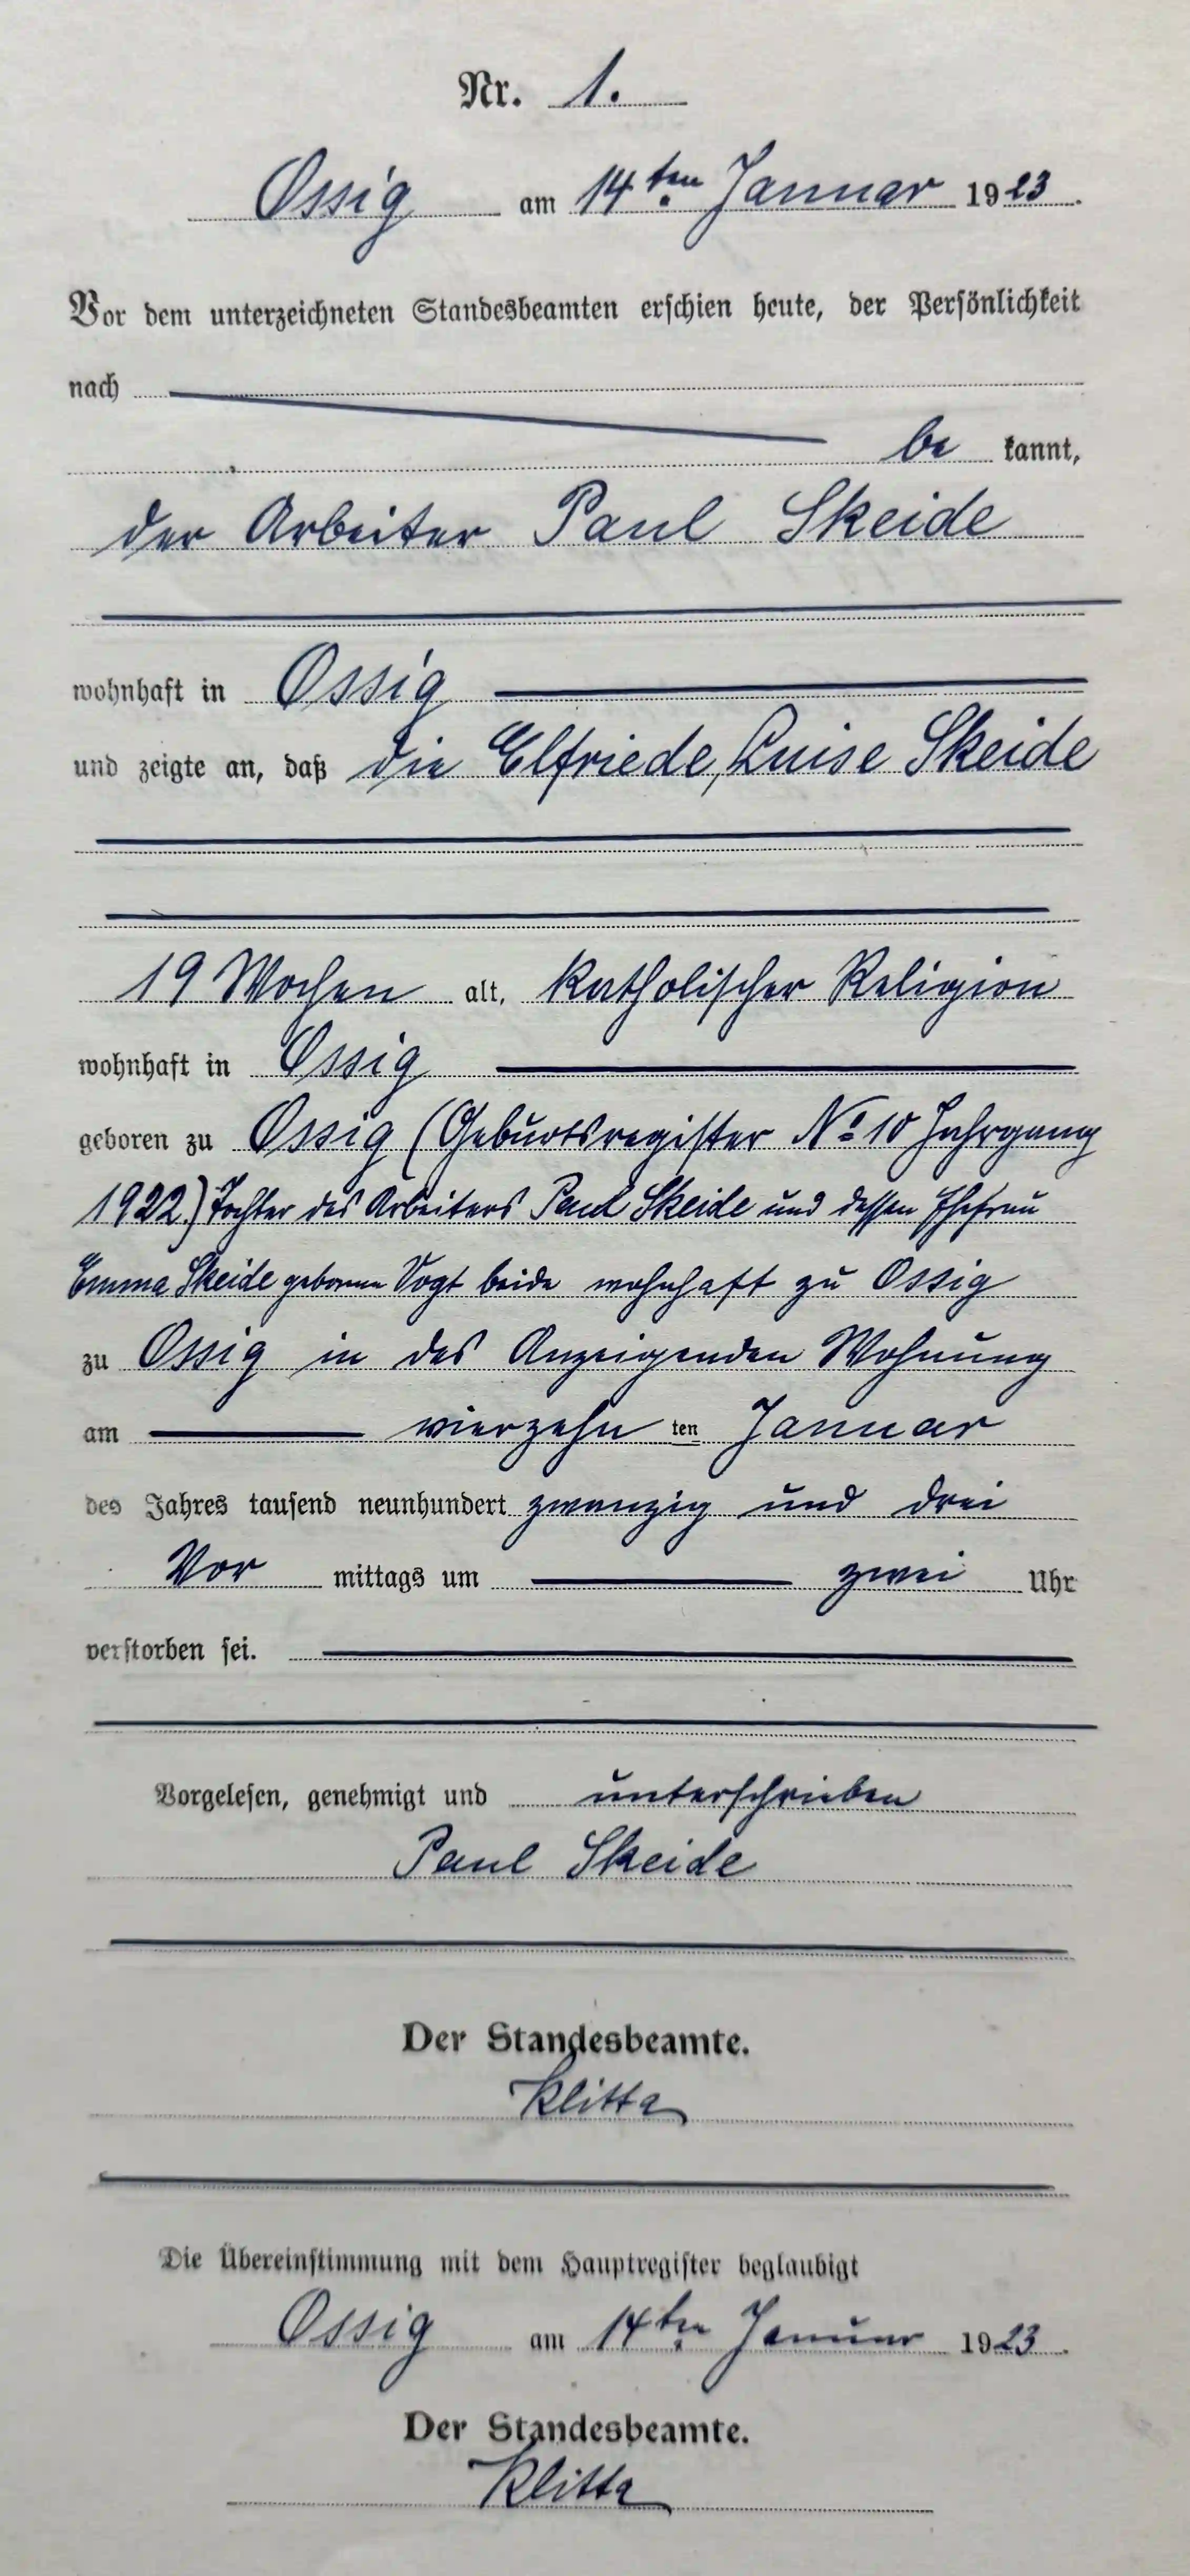 Nr. 1.
Ossig am 14ten Januar 1923.
Vor dem unterzeichneten Standesbeamten erschien heute, der Persönlichkeit
nach
be kannt,
der Arbeiter Paul Skeide
wohnhaft in Ossig
und zeigte an, daß die Elfriede, Luise Skeide
19 Wochen alt, katholischer Religion
wohnhaft in Ossig
geboren zu Ossig (Geburtsregister No 10 Jahrgang
1922) Tochter des Arbeiters Paul Skeide und dessen Ehefrau
Emma Skeide geborene Vogt beide wohnhaft zu Ossig
zu Ossig in des Anzeigenden Wohnung
am vierzehn ten Januar
des Jahres tausend neunhundert zwanzig und drei
Vor mittags um zwei Uhr
verstorben sei.
Vorgelesen, genehmigt und unterschrieben
Paul Skeide
Der Standesbeamte.
Klitta
Die Übereinstimmung mit dem Hauptregister beglaubigt
Ossig am 14ten Januar 1923.
Der Standesbeamte.
Klitta